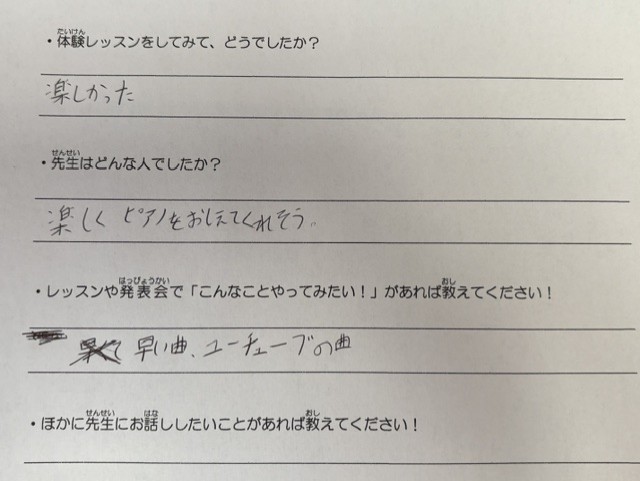 ・体験レッスンをしてみて、どうでしたか？
楽しかった
・先生はどんな人でしたか？
楽しく ピアノをおしえてくれそう。
・レッスンや発表会で「こんなことやってみたい！」があれば教えてください！
早い曲、ユーチューブの曲
・ほかに先生にお話ししたいことがあれば教えてください！